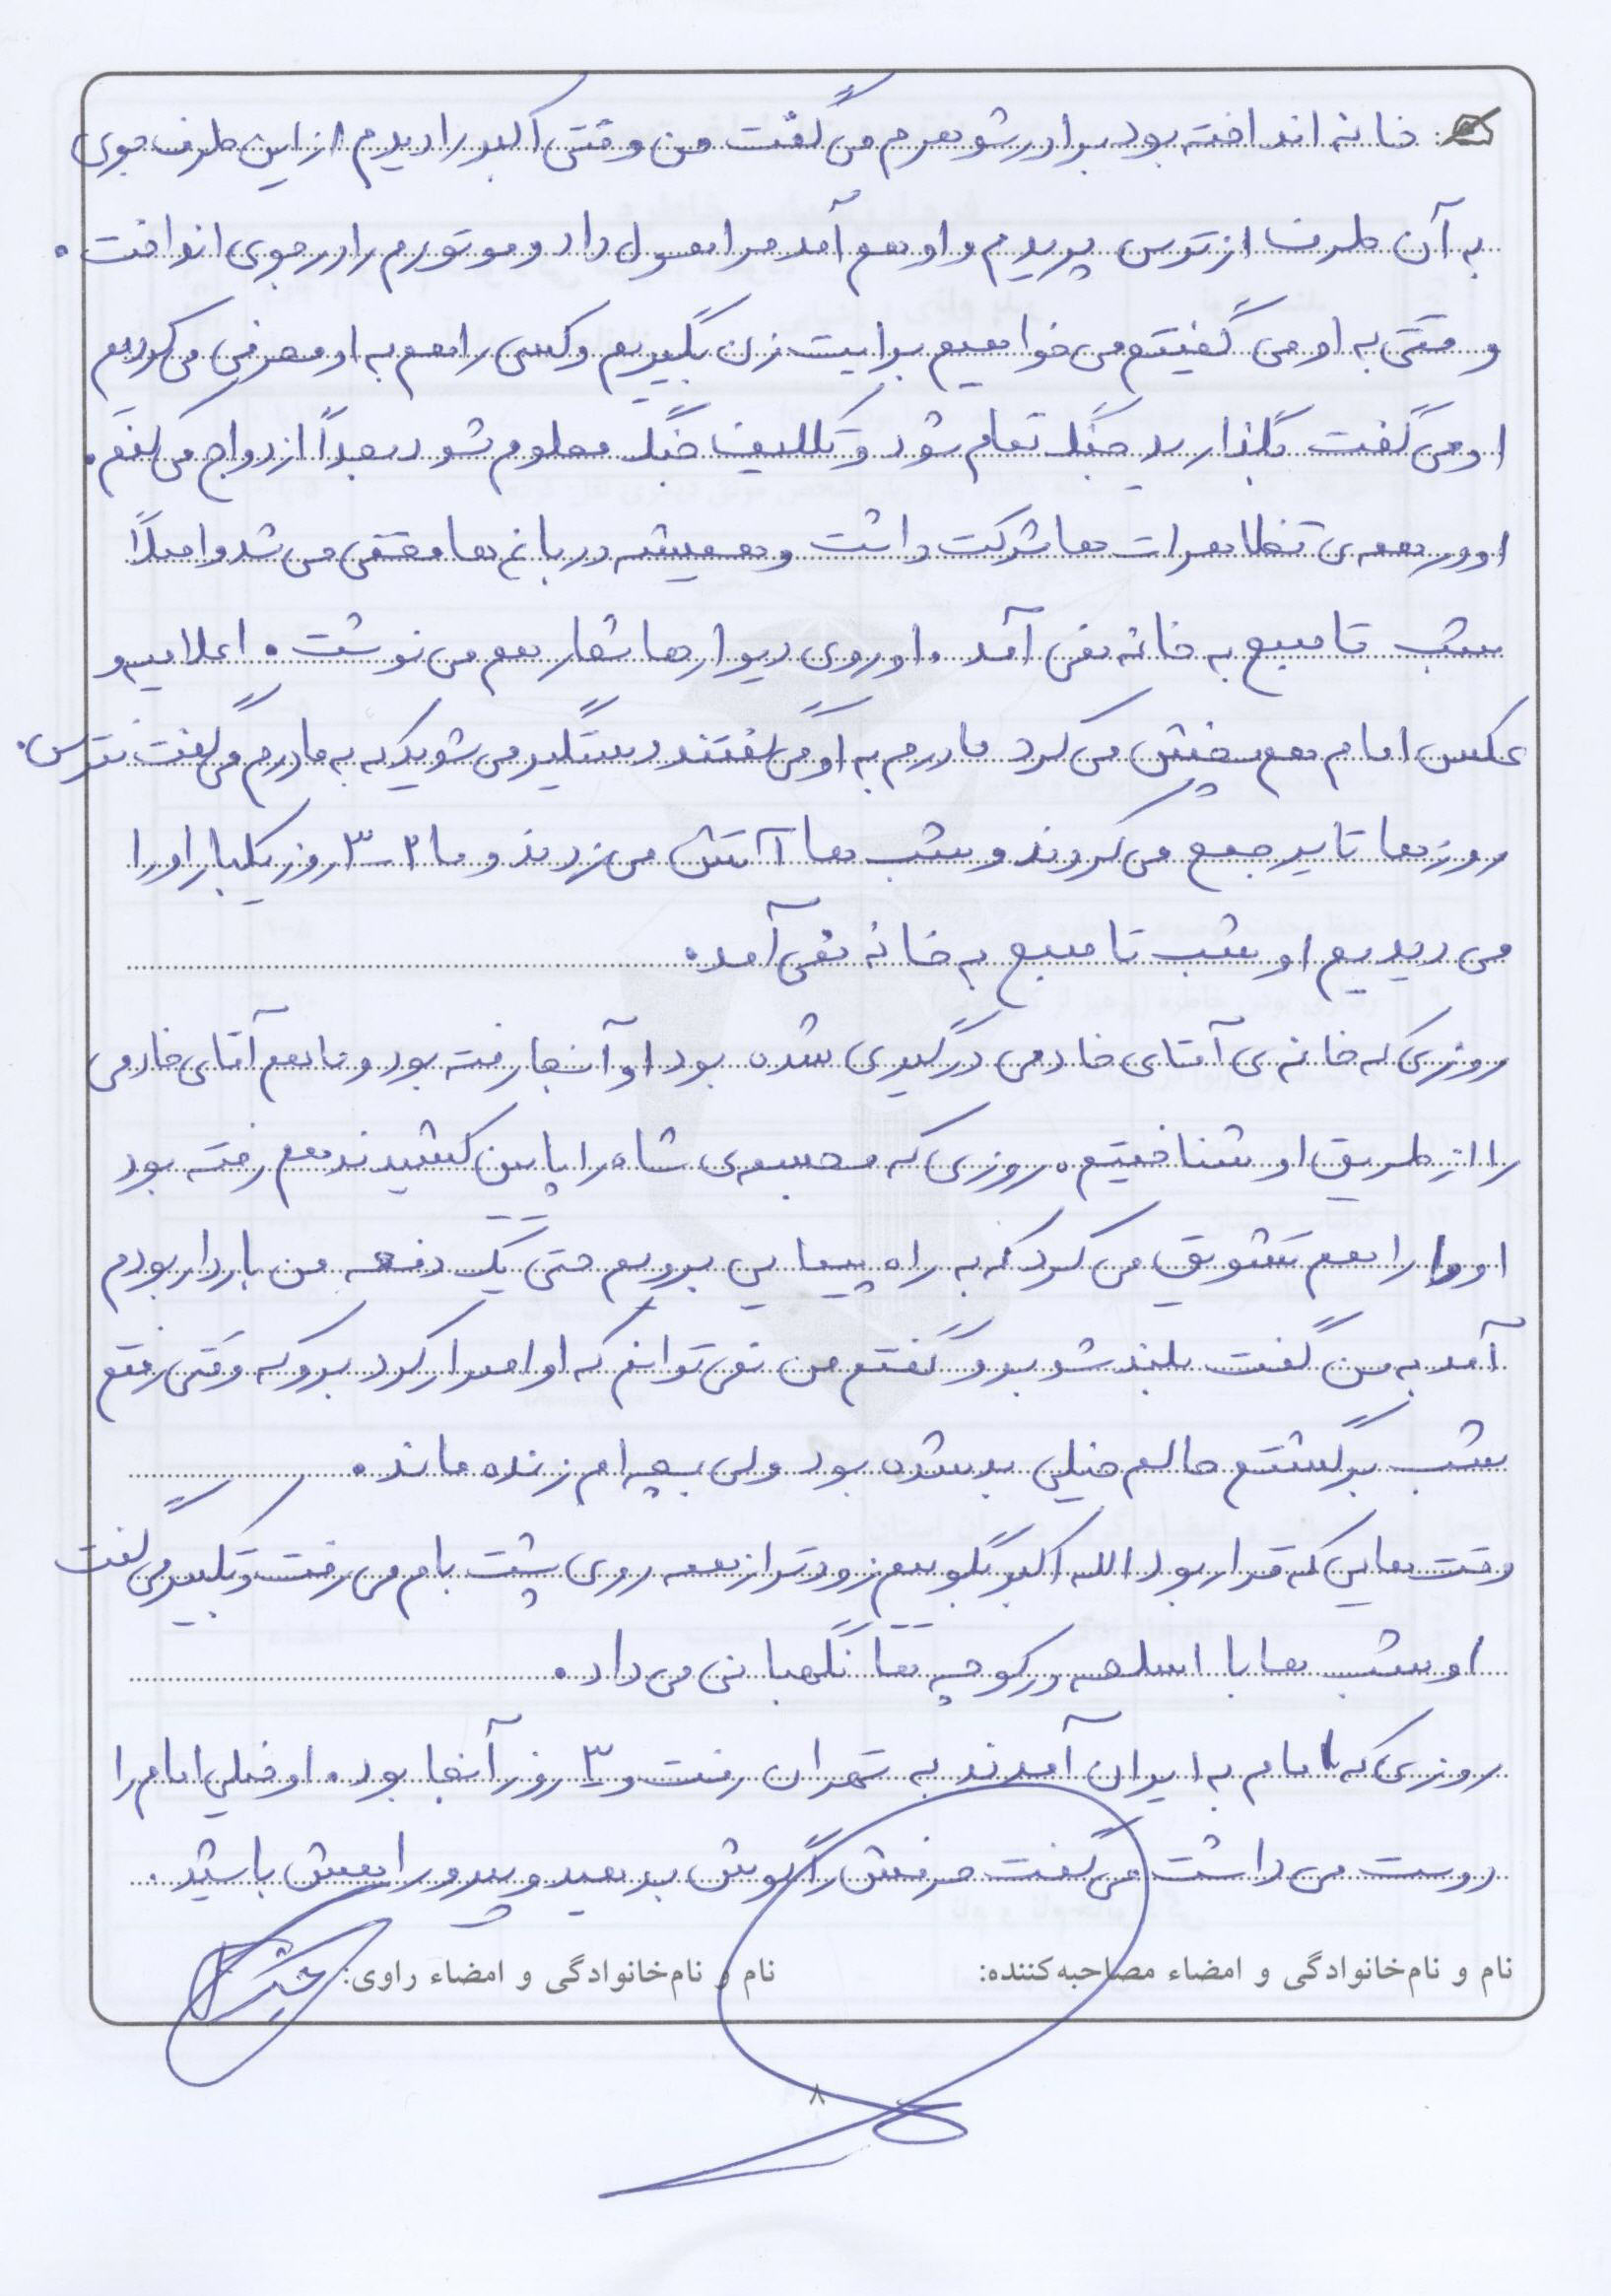 خانه انداخته بود برادر شوهرم می گفت من وقتی اکبر را دیدم از این طرف جوی
به آن طرف از ترس پریدم و او هم آمد مرا هول داد و موتورم را در جوی انداخت.
وقتی به او می گفتیم می خواهیم برایت زن بگیریم و کسی را هم به او معرفی می کردیم
او می گفت بگذارید جنگ تمام شود و تکلیف جنگ معلوم شود بعداً ازدواج می کنم.
او در همه ی تظاهرات ها شرکت داشت و همیشه در باغ ها مخفی می شد و اصلاً
شب تا صبح به خانه نمی آمد. او روی دیوارها شعار هم می نوشت. اعلامیه و
عکس امام هم پخش می کرد مادرم به او می گفتند دستگیر می شوید که به مادرم می گفت نترس.
روزها تایر جمع می کردند و شب ها آتش می زدند و ما ۲-۳ روز یکبار او را
می دیدیم او شب تا صبح به خانه نمی آمد.
روزی که خانه ی آقای خادمی درگیری شده بود او آنجا رفته بود و ما هم آقای خادمی
را از طریق او شناختیم. روزی که مجسمه ی شاه را پایین کشیدند هم رفته بود
او ما را هم تشویق می کرد که به راه پیمایی برویم حتی یک دفعه من باردار بودم
آمد به من گفت بلند شو برو گفتم من نمی توانم که او اصرار کرد برو که وقتی رفتم
شب برگشتم حالم خیلی بد شده بود ولی بچه ام زنده ماند.
وقت هایی که قرار بود الله اکبر بگوییم زودتر از همه روی پشت بام می رفت و تکبیر می گفت
او شب ها با اسلحه در کوچه ها نگهبانی می داد.
روزی که امام به ایران آمدند به تهران رفت و ۳ روز آنجا بود. او خیلی امام را
دوست می داشت می گفت حرفش را گوش بدهید و پیرو راهش باشید.
نام و نام‌خانوادگی و امضاء مصاحبه‌کننده: نام و نام‌خانوادگی و امضاء راوی:
۸